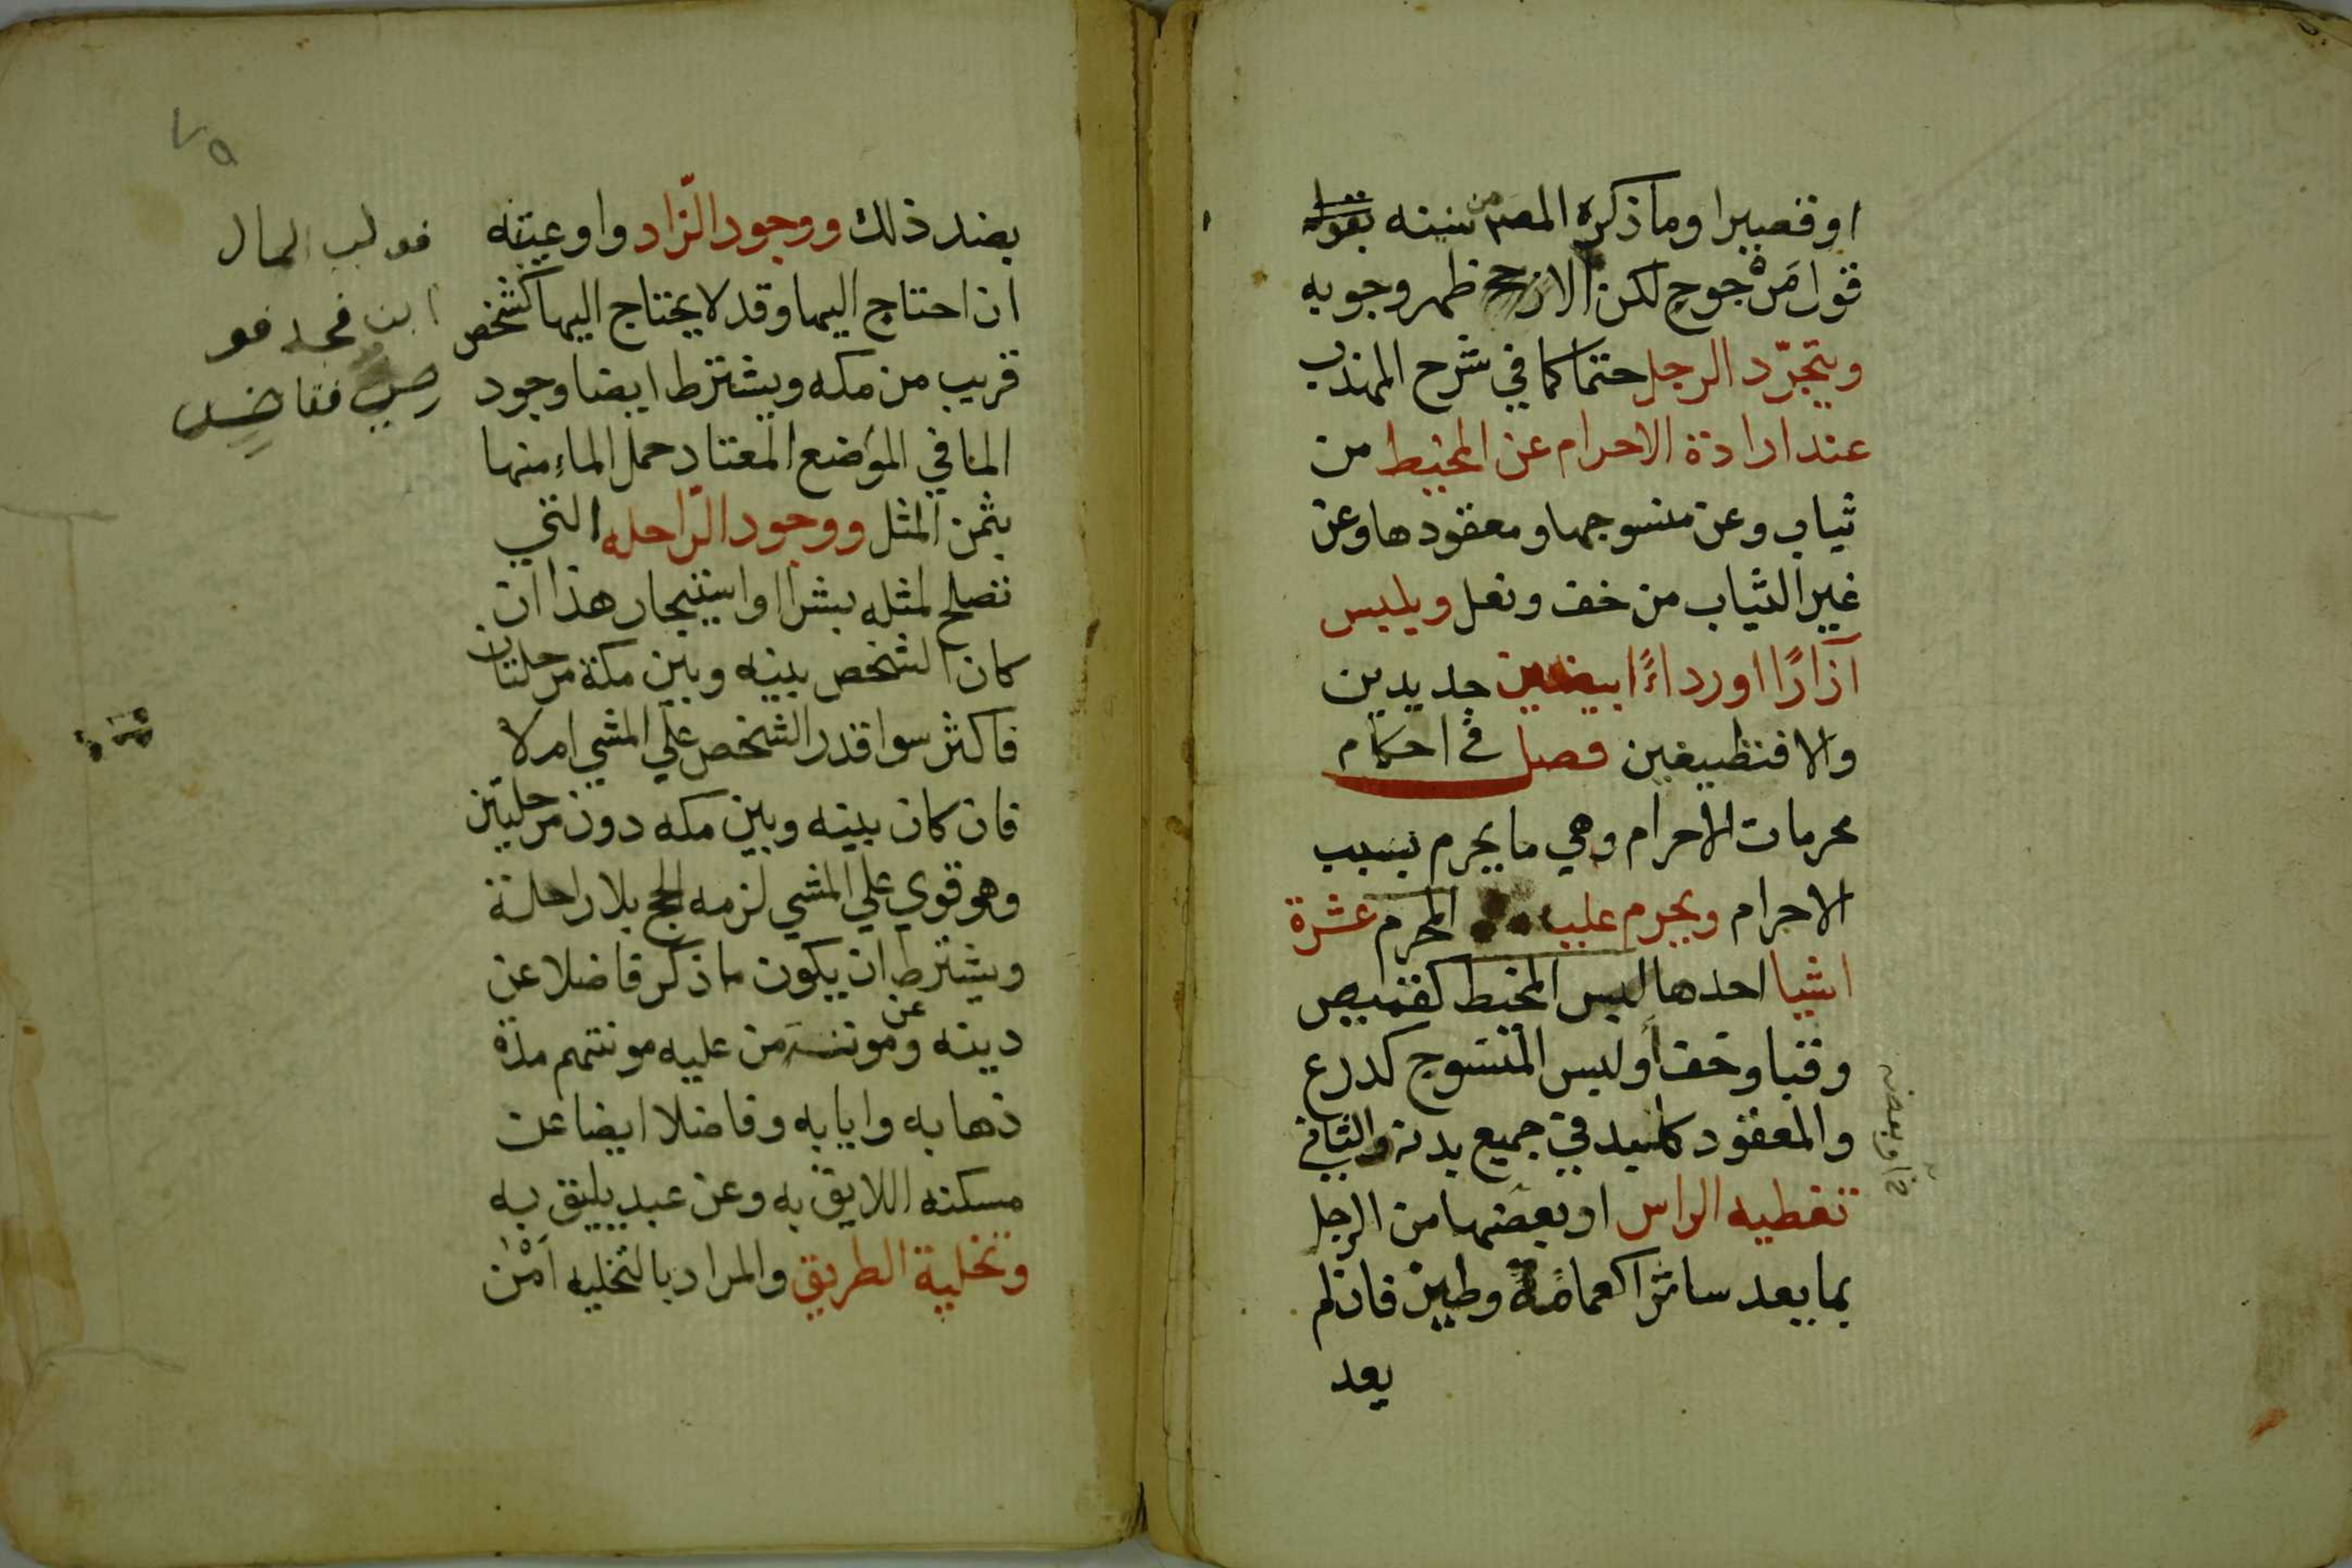 او قصيرا وما ذكره المصـ من سنيته
قول مَرْجوح لكن الارجح ظهر وجوبه
ويتجرّد الرجل حتما كما في شرح المهذب
عند ارادة الاحرام عن المخيط من
ثياب وعن منسوجها ومعقودها وعن
غير الثياب من خف ونعل ويلبس
آزارًا اورداءًا ابيضين جديدين
والا فنظيفين فصل في احكام
محرمات الاحرام وهي ما يحرم بسبب
الاحرام ويحرم علي المحرم عشرة
اشيا احدها لبس المخيط كقميص
وقبا وخف أو لبس المنسوج كدرع
والمعقود كلبد في جميع بدنه والثاني
تغطيه الراس او بعضها من الرجل
بما يعد ساترا كعمامة وطين فان لم
يعد
بضد ذلك ووجود الزّاد واوعيته
ان احتاج اليها وقد لا يحتاج اليها كشخص
قريب من مكه ويشترط ايضا وجود
الما في المواضع المعتاد حمل الماء منها
بثمن المثل ووجود الرّاحله التي
تصلح لمثله بشرا او استيجار هذا ان
كان الشخص بينه وبين مكة مرحلتان
فاكثر سوا قدر الشخص علي المشي ام لا
فان كان بينه وبين مكه دون مرحلتين
وهو قوي علي المشي لزمه الحج بلا راحلة
ويشترط ان يكون ما ذكر فاضلا عن
دينه وعن مونة من عليه مونتهم مدة
ذهابه وايابه وفاضلا ايضا عن
مسكنه اللايق به وعن عبد يليق به
وتخلية الطريق والمراد بالتخليه اَمْن